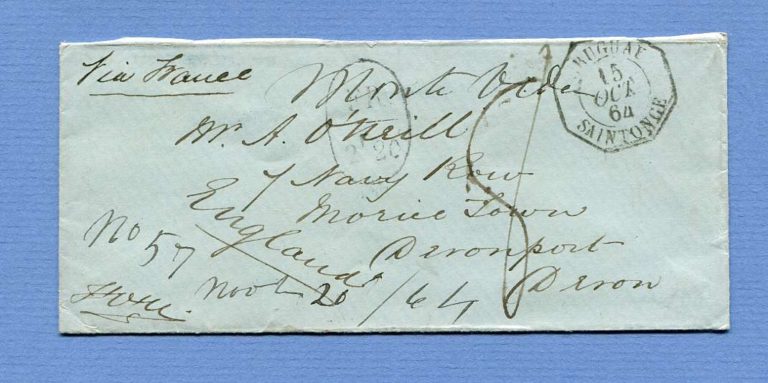 Via France
Monte Video
URUGUAY
15
OCT
64
SAINTONGE
Mr. A. O'Neill
7 Navy Row
Morice Town
Devonport
Devon
England
No 57
20/64